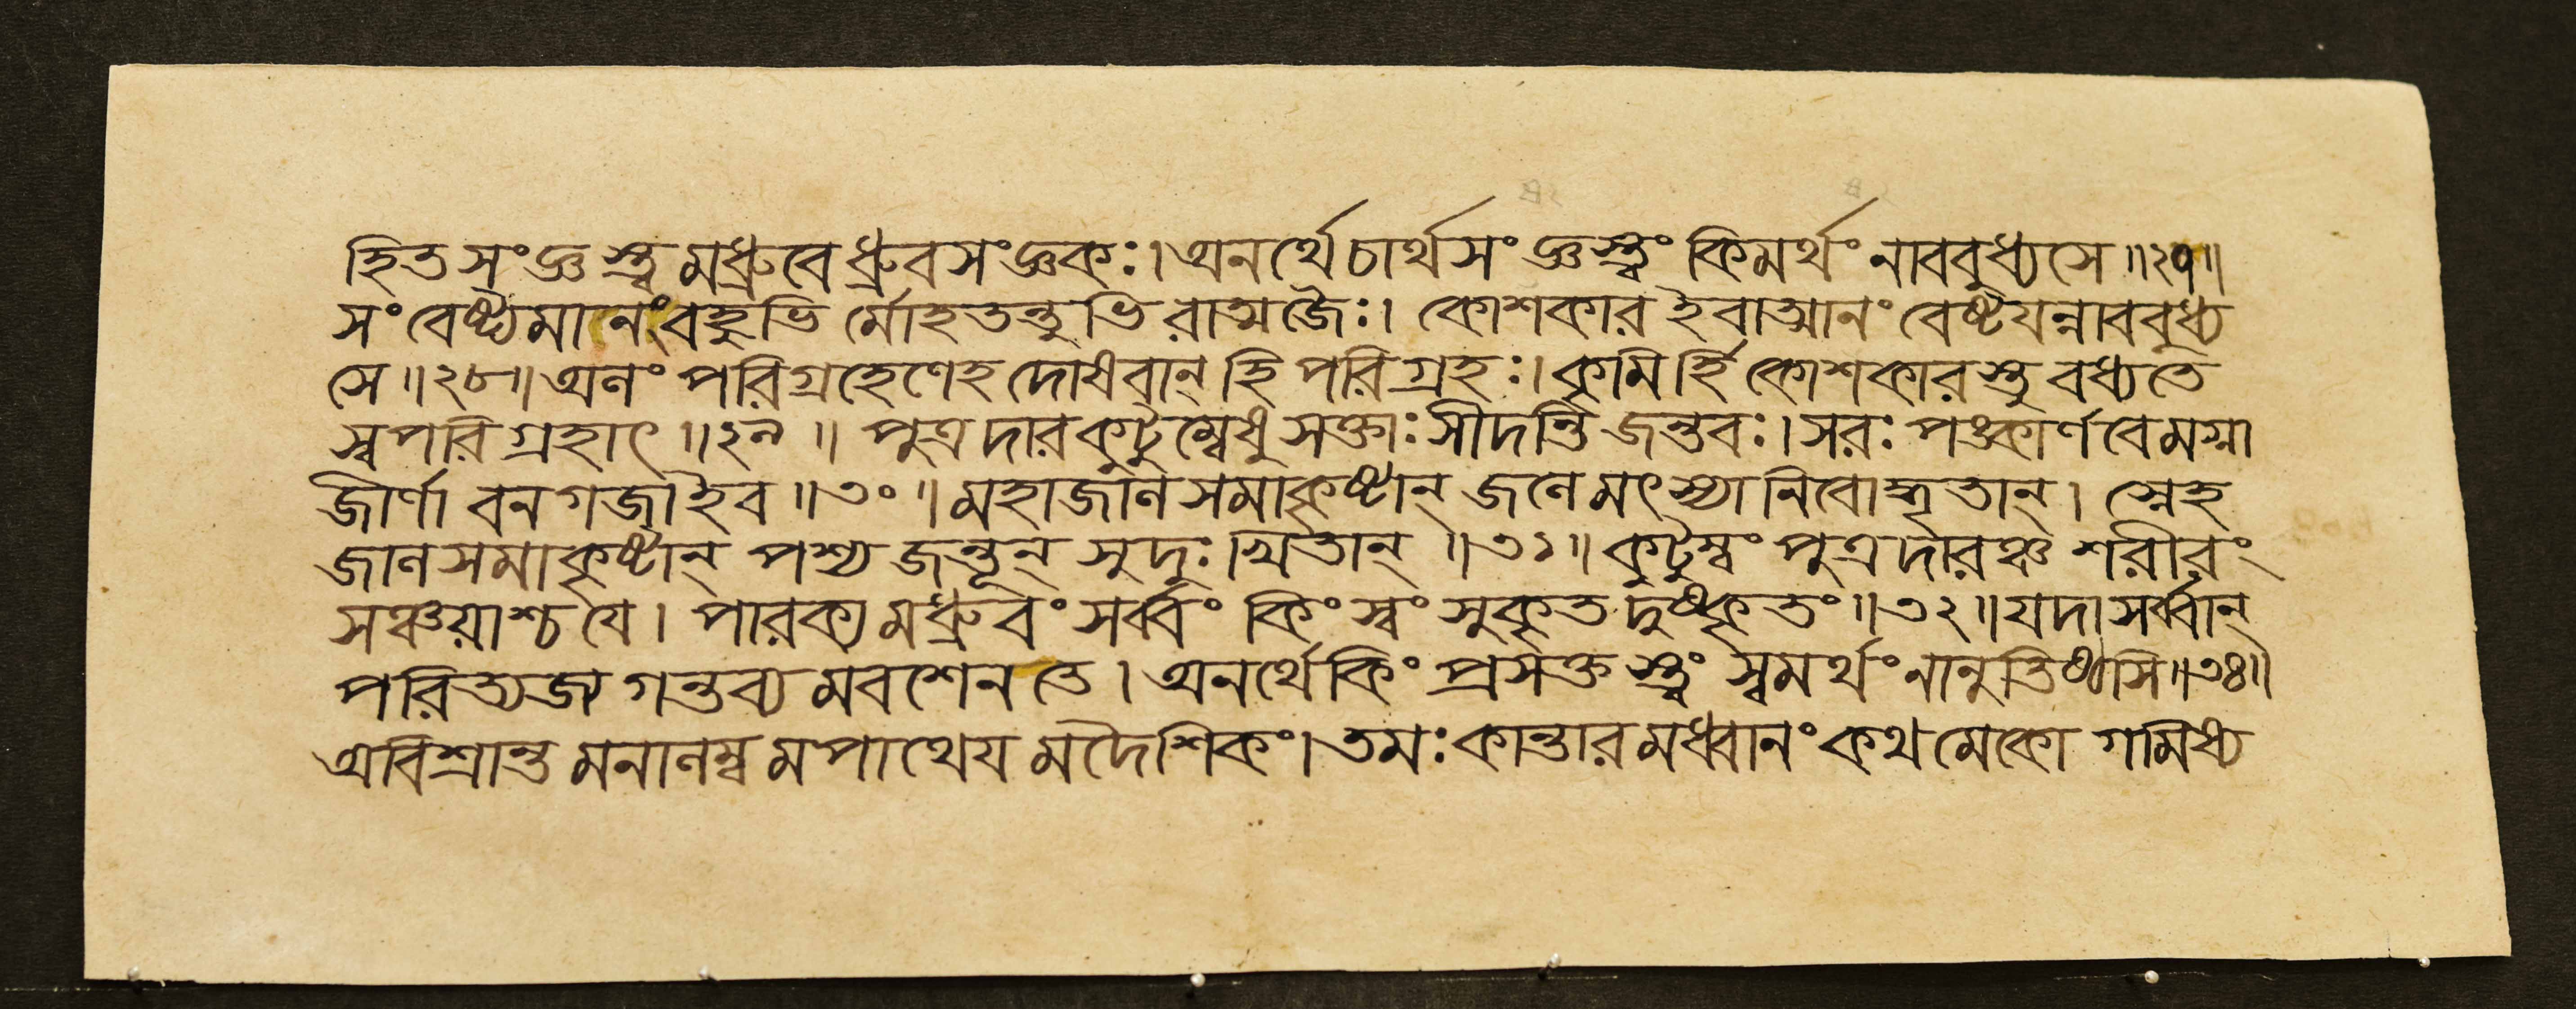 হিতসংজ্ঞস্ত্বমধ্রুবে ধ্রুবসংজ্ঞকঃ। অনর্থে চার্থসংজ্ঞস্ত্বং কিমর্থং নাববুধ্যসে॥২৭॥
সংবেষ্ট্যমানং বহুভি র্মোহতন্তুভি রাত্মজৈঃ। কোশকার ইবাত্মানং বেষ্টযন্নাববুধ্য
সে॥২৮॥ অলং পরিগ্রহেণেহ দোষবান্ হি পরিগ্রহঃ। কৃমির্হি কোশকারস্তু বধ্যতে
স্বপরিগ্রহাৎ॥২৯॥ পুত্রদারকুটুম্বেষু সক্তাঃ সীদন্তি জন্তবঃ। সরঃ পঙ্কার্ণবে মগ্না
জীর্ণা বনগজা ইব॥৩০॥ মহাজালসমাকৃষ্টান্ জলে মৎস্যানিবোদ্ধৃতান্। স্নেহ
জালসমাকৃষ্টান্ পশ্য জন্তূন্ সুদুঃখিতান্॥৩১॥ কুটুম্বং পুত্রদারঞ্চ শরীরং
সঞ্চয়াশ্চ যে। পারক্যমধ্রুবং সর্ব্বং কিং স্বং সুকৃতদুষ্কৃতং॥৩২॥ যদা সর্ব্বান্
পরিত্যজ্য গন্তব্যমবশেন তে। অনর্থে কিং প্রসক্তস্ত্বং স্বমর্থং নানুতিষ্ঠসি॥৩৪॥
অবিশ্রান্তমনালম্বমপাথেযমদৈশিকং। তমঃকান্তারমধ্বানং কথমেকো গমিষ্য